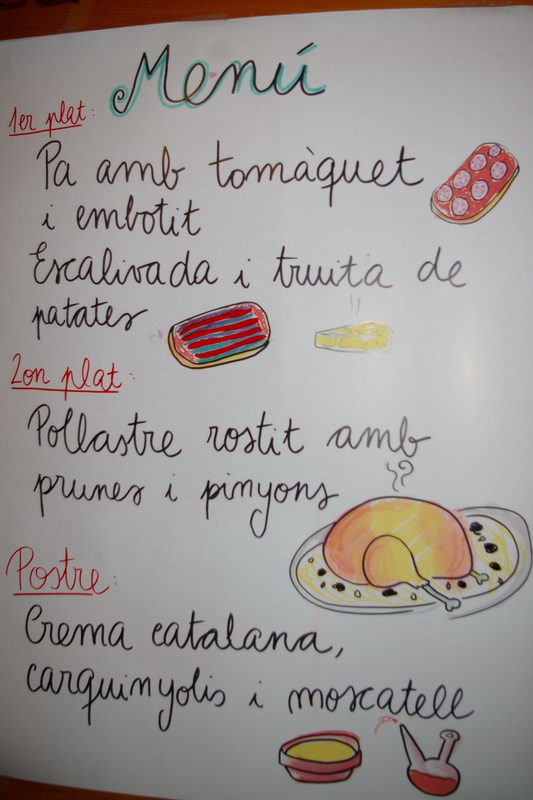 Menú
1er plat:
Pa amb tomàquet
i embotit
Escalivada i truita de
patates
2on plat:
Pollastre rostit amb
prunes i pinyons
Postre:
Crema catalana,
carquinyolis i moscatell